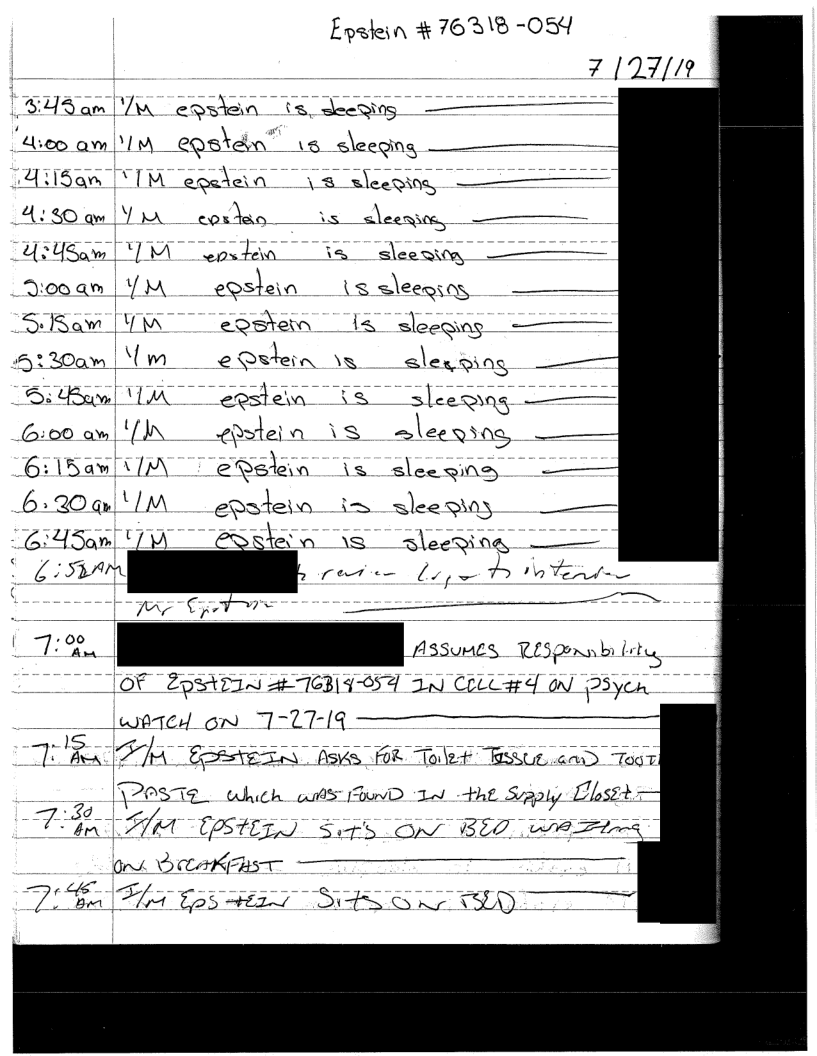 Epstein # 76318-054
7/27/19
3:45 am I/M epstein is sleeping
4:00 am I/M epstein is sleeping
4:15am I/M epstein is sleeping
4:30 am I/M epstein is sleeping
4:45am I/M epstein is sleeping
5:00 am I/M epstein is sleeping
5:15am I/M epstein is sleeping
5:30am I/m epstein is sleeping
5:45am I/M epstein is sleeping
6:00 am I/M epstein is sleeping
6:15am I/M epstein is sleeping
6:30am I/M epstein is sleeping
6:45am I/M epstein is sleeping
AM review to interview
Mr Epstein
7:00 AM ASSUMES RESponsibility
OF EpstEIN # 76318-054 IN CELL #4 ON psych
WATCH ON 7-27-19
7:15 AM I/M EPSTEIN ASKS FOR Toilet TISSUE and TOOT
PASTE which was FOUND IN the Supply Closet
7:30 AM I/M EPSTEIN Sit's ON BED WAITing
ON BREAKFAST
7:45 AM I/M EPSTEIN Sits ON BED